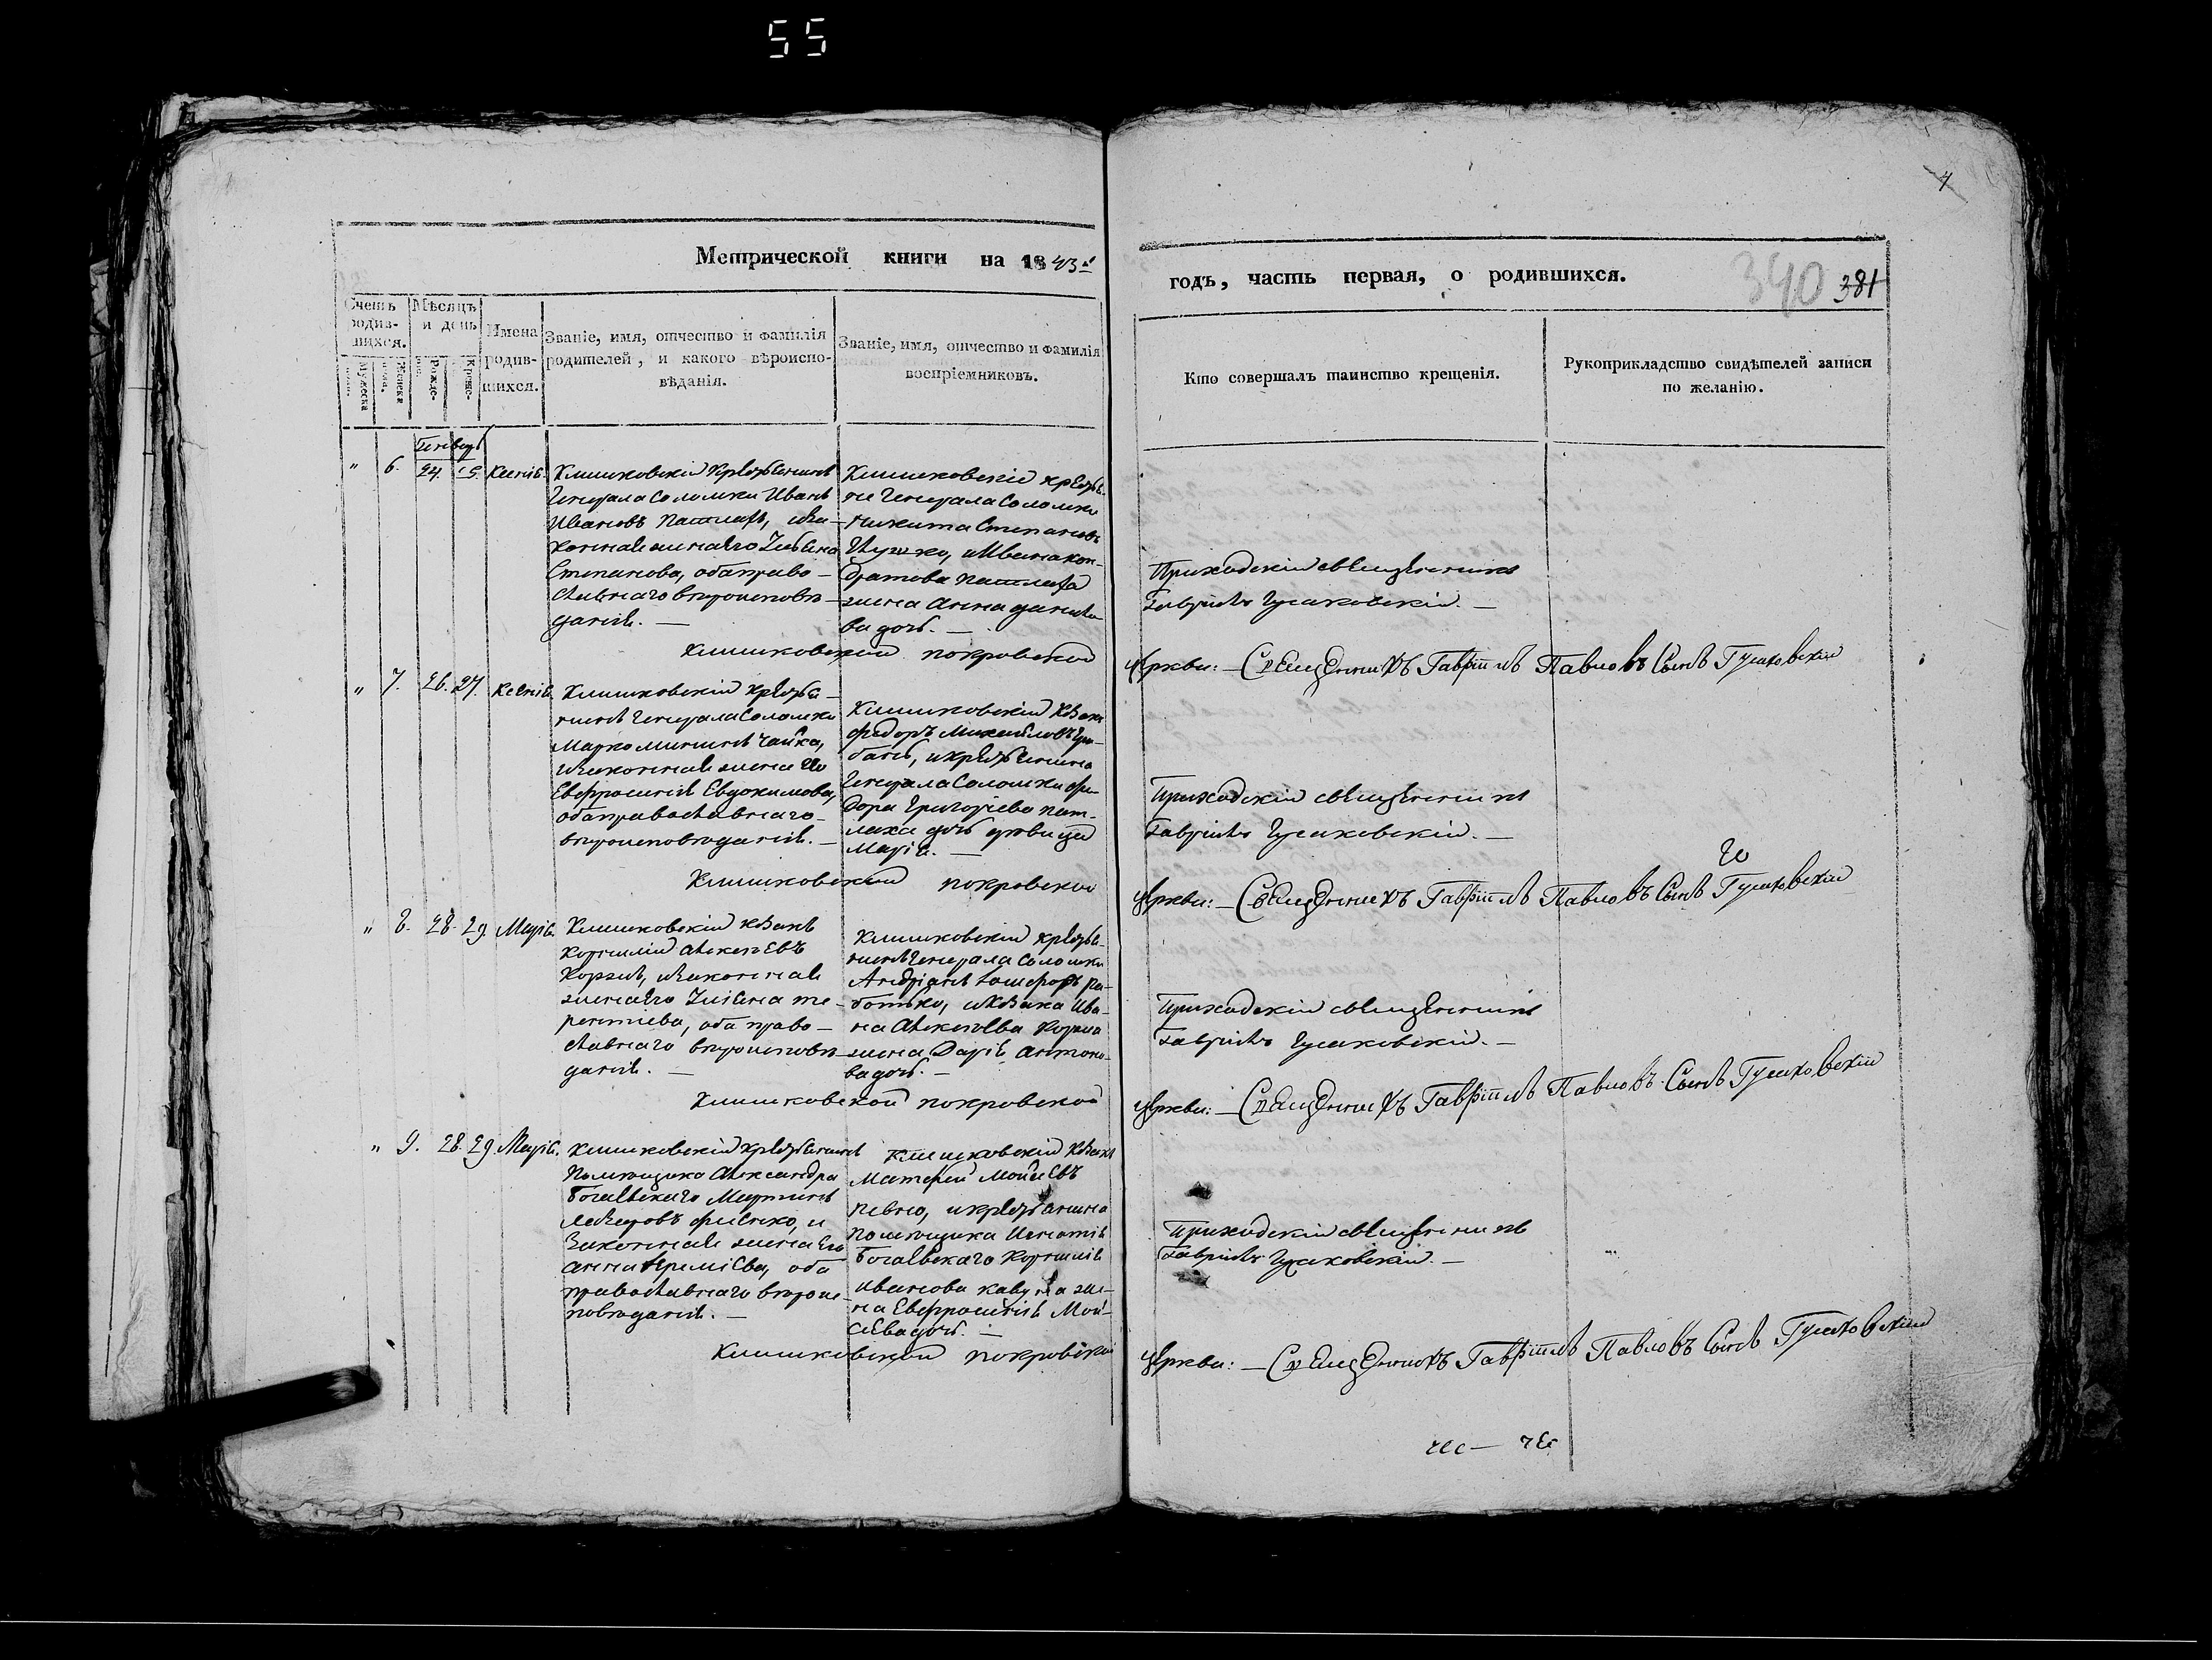 55
4
Метрической книги на 1843й
годъ, часть первая, о родившихся.
340 381
Счетъ родившихся.
Мѣсяцъ и день
Имена родившихся.
Званіе, имя, отчество и фамилія родителей, и какого вѣроисповѣданія.
Званіе, имя, отчество и фамилія воспріемниковъ.
Кто совершалъ таинство крещенія.
Рукоприкладство свидѣтелей записи по желанію.
Мужеска
Женска
Рожде-
Креще-
Генварь
" 6. 24. 25. Ксенія.
Клишковскій крестьянинъ
Генерала Соломки Иванъ
Ивановъ Патлахъ, и за-
конная жена его
Степанова, оба право-
славнаго вѣроисповѣ-
данія. —
Клишковскіе крестья-
не Генерала Соломки
Никита Степановъ
и Ивана Кон-
дратова Патлаха
жена Анна Данило-
ва дочь. —
Приходскій священникъ
Гавріилъ Гусаковскій. —
Клишковской Покровской церкви: — Священникъ Гавріилъ Павловъ Сынъ Гусаковскій
" 7. 26. 27. Ксенія.
Клишковскій крестья-
нинъ Генерала Соломки
Марко Мининъ Чайка,
и законная жена его
Евфросинія Евдокимова,
оба православнаго
вѣроисповѣданія. —
Клишковскій козакъ
Федоръ Михайловъ
и крестьянина
Генерала Соломки Фе-
дора Григорьева Пат-
лаха дочь девица
Марія. —
Приходскій священникъ
Гавріилъ Гусаковскій. —
Клишковской Покровской церкви: — Священникъ Гавріилъ Павловъ Сынъ Гусаковскій
" 8. 28. 29. Марія.
Клишковскій козакъ
Корнилій Алексѣевъ
и законная
жена его
рентіева, оба право-
славнаго вѣроисповѣ-
данія. —
Клишковскій крестья-
нинъ Генерала Соломки
Андріанъ
и козака Ива-
на Алексѣева
жена Дарія Антоно-
ва дочь. —
Приходскій священникъ
Гавріилъ Гусаковскій. —
Клишковской Покровской церкви: — Священникъ Гавріилъ Павловъ Сынъ Гусаковскій
" 9. 28. 29. Марія.
Клишковскій крестьянинъ
Помѣщика Александра
Богаевскаго Мартинъ
Лазаровъ и
законная жена его
Анна Ереміева, оба
православнаго вѣроис-
повѣданія. —
Клишковскій козакъ
Матфей Мойсеевъ
и крестьянина
помѣщика Игнатія
Богаевскаго Корнилія
Иванова Кавуна же-
на Евфросинія Мой-
сеева дочь. —
Приходскій священникъ
Гавріилъ Гусаковскій. —
Клишковской Покровской церкви: — Священникъ Гавріилъ Павловъ Сынъ Гусаковскій